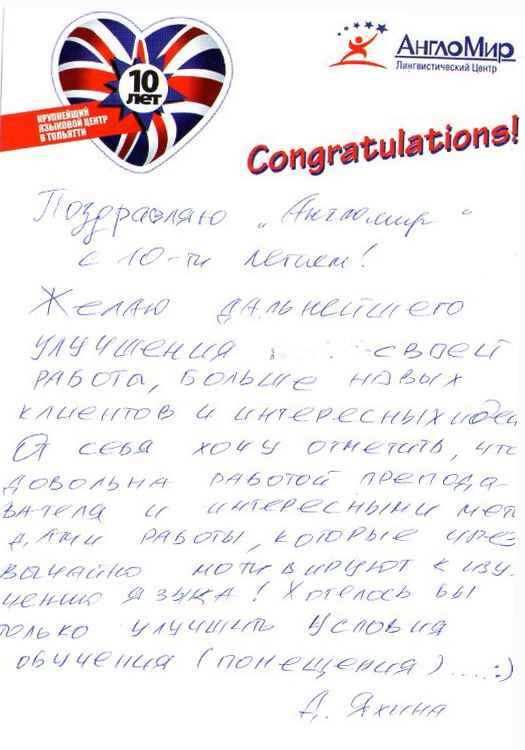 10
ЛЕТ
КРУПНЕЙШИЙ
ЯЗЫКОВОЙ ЦЕНТР
В ТОЛЬЯТТИ
АнглоМир
Лингвистический Центр
Congratulations!
Поздравляю „Англомир“
с 10-ти летием!
Желаю дальнейшего
улучшения своей
работа, больше новых
клиентов и интересных идей
От себя хочу отметить, что
довольна работой препода-
вателя и интересными мето
дами работы, которые чрез
вычайно мотивируют к изу-
чению языка! Хотелось бы
только улучшить условия
обучения (помещения)....:)
Д. Яхина